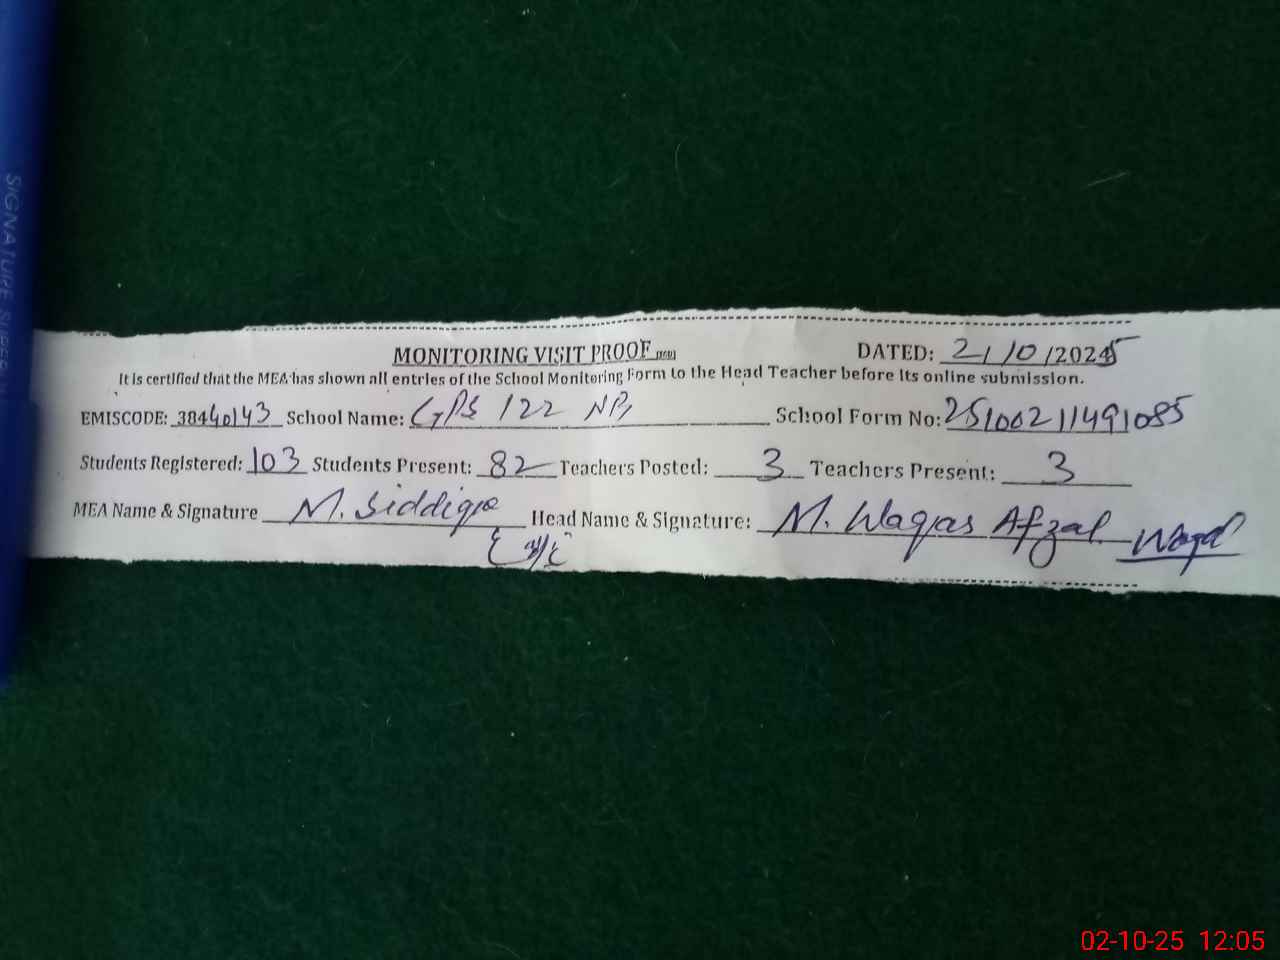 MONITORING VISIT PROOF DATED: 2/10/2025
It is certified that the MEA has shown all entries of the School Monitoring Form to the Head Teacher before its online submission.
EMISCODE: 38440143 School Name: GPS 122 NB School Form No: 25100211491085
Students Registered: 103 Students Present: 82 Teachers Posted: 3 Teachers Present: 3
MEA Name & Signature M. Siddique Head Name & Signature: M. Waqas Afzal Waqas
SIGNATURE
02-10-25 12:05